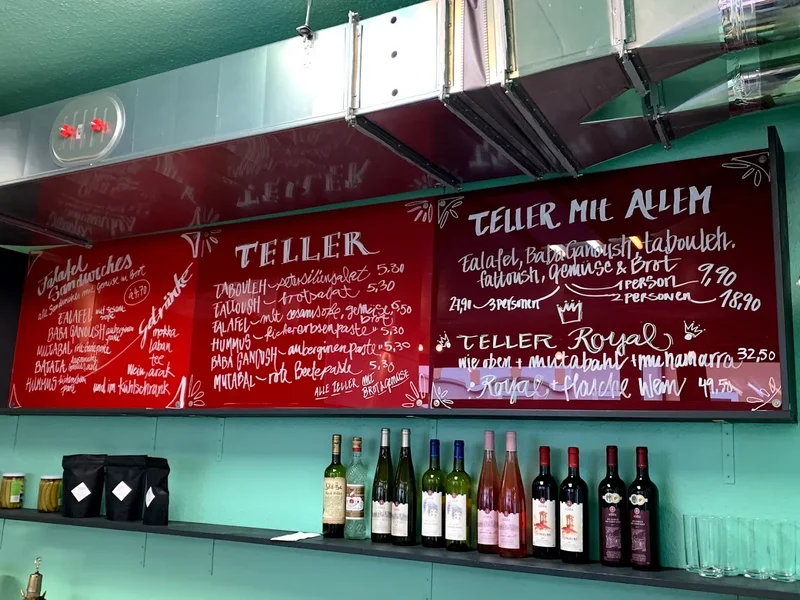 Falafel
Sandwiches
alle Sandwiches mit Gemüse im Brot
FALAFEL mit sesam
BABA GANOUSH auberginen
MUTABAL
BATATA
HUMMUS kichererbsen
Getränke
mokka
laban
tee
Wein, arak
und im Kühlschrank
TELLER
TABOULEH petersiliensalat 5,30
FATTOUSH brotsalat 5,30
FALAFEL mit sesamsoße, gemüse 5,50
Brot
HUMMUS kichererbsenpaste 5,30
BABA GANOUSH auberginenpaste 5,30
MUTABAL rote Beetepaste 5,30
ALLE TELLER MIT
BROT & GEMÜSE
TELLER MIT ALLEM
Falafel, Baba Ganoush, tabouleh,
fattoush, gemüse & Brot
1 person 9,90
2 personen 18,90
3 personen
TELLER Royal
wie oben + mutabahl + muhamarra 32,50
Royal + Flasche Wein 49,50